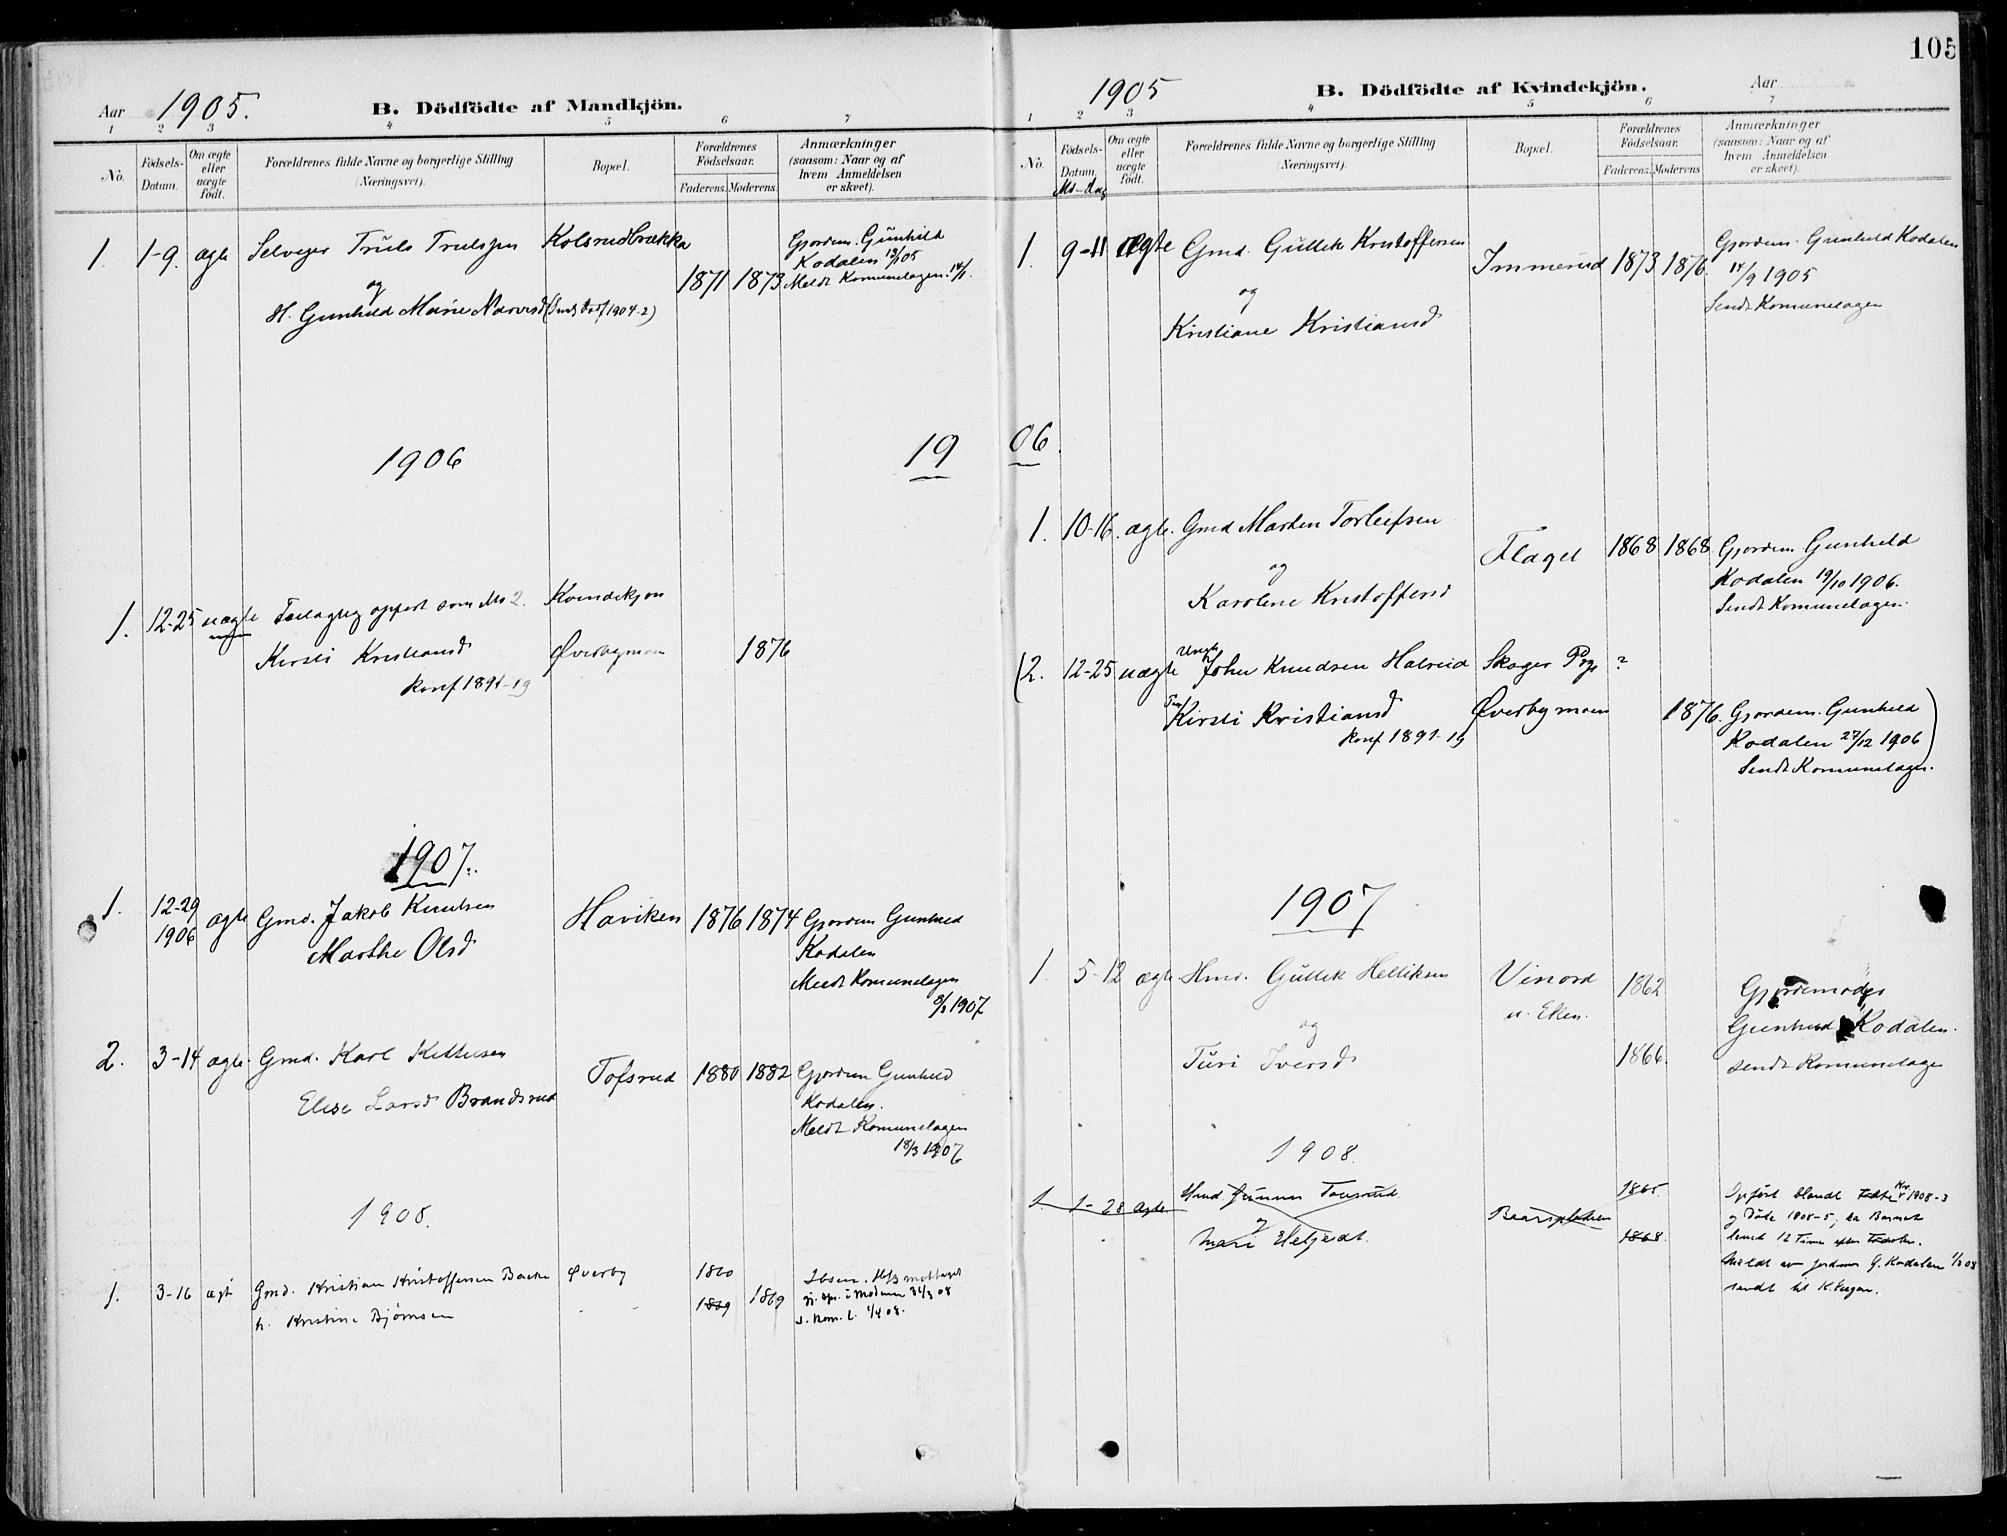 105
Aar 1905.
B. Dödfödte af Mandkjön.
1 2 3 4 5 6 7
No.
Födsels-Datum.
Om ægte eller uægte födt.
Forældrenes fulde Navne og borgerlige Stilling (Næringsvei).
Bopæl.
Forældrenes Födselsaar.
Faderens. Moderens.
Anmærkninger (saasom: Naar og af hvem Anmeldelsen er skeet).
1. 1-9. ægte Selveger Truls Trulsen Kolsrudbrækka
og
H. Gunhild Marie Narvesd
1871 1873
Gjordem. Gunhild
Kodalen 13/1 05
Meldt Komunelægen. 14/1.
1906
19
1. 12-25 uægte Feilagtig opført som No 2. Kvindekjøn
Kirsti Kristiansd Øverbymoen 1876
konf 1891-19
1907.
1. 12-29 1906 ægte Gmd. Jakob Knudsen
Marthe Olsd
Haviken 1876 1874
Gjordem Gunhild
Kodalen
Meldt Komunelægen
1907
2. 3-14 ægte. Gmd. Karl Kittelsen
Elise Larsd Brandsrud
Tofsrud 1880 1882
Gjordem Gunhild
Kodalen.
Meldt Komunelægen
18/3 1907
1908.
1. 3-16 ægt Gmd. Kristian Kristoffersen Bakke Øverby 1860
1869 1869
h. Kristine Bjørnsen
s. Kom. l. 1/4 08.
1905
B. Dödfödte af Kvindekjön.
Aar
1 2 3 4 5 6 7
No.
Födsels-Datum.
Md-dag
Om ægte eller uægte födt.
Forældrenes fulde Navne og borgerlige Stilling (Næringsvei).
Bopæl.
Forældrenes Födselsaar.
Faderens. Moderens
Anmærkninger (saasom: Naar og af hvem Anmeldelsen er skeet).
1. 9-11 ægte Gmd. Gullik Kristoffersen
og
Kristiane Kristiansd
Immerud 1873 1876.
Gjordem. Gunhild Kodalen
14/9 1905
Sendt Komunelægen
06.
1. 10-16. ægte. Gmd Marten Torleifsen
og
Karoline Kristoffersd
Flaget 1868 1868
Gjordem Gunhild
Kodalen 19/10 1906.
Sendt Komunelægen.
(2. 12-25 uægte Ungk John Knudsen Halsrud Skoger Pgj ?
Kirsti Kristiansd Øverbymoen 1876.
konf. 1891-19
Gjordem. Gunhild
Kodalen 27/12 1906)
Sendt Komunelægen.
1907
1. 5-12 ægte Hmd. Gullik Helliksen
og
Turi Iversd
Vinord
u. Eken.
1862
1866.
Gjordemoder
Gunhild Kodalen.
sendt Komunelæge
1908.
1. 1-28 ægte Hmd. Gunnar Tousrud.
og
Mari Helgesdt.
Baarsplassen
1865.
1868.
Opført blandt fødte Kv. 1908-3
og Døde 1908-5, da Barnet
levet 12 Timer efter Fødselen.
Meldt av jordmor G. Kodalen 1/2 08
sendt til K.lægen.